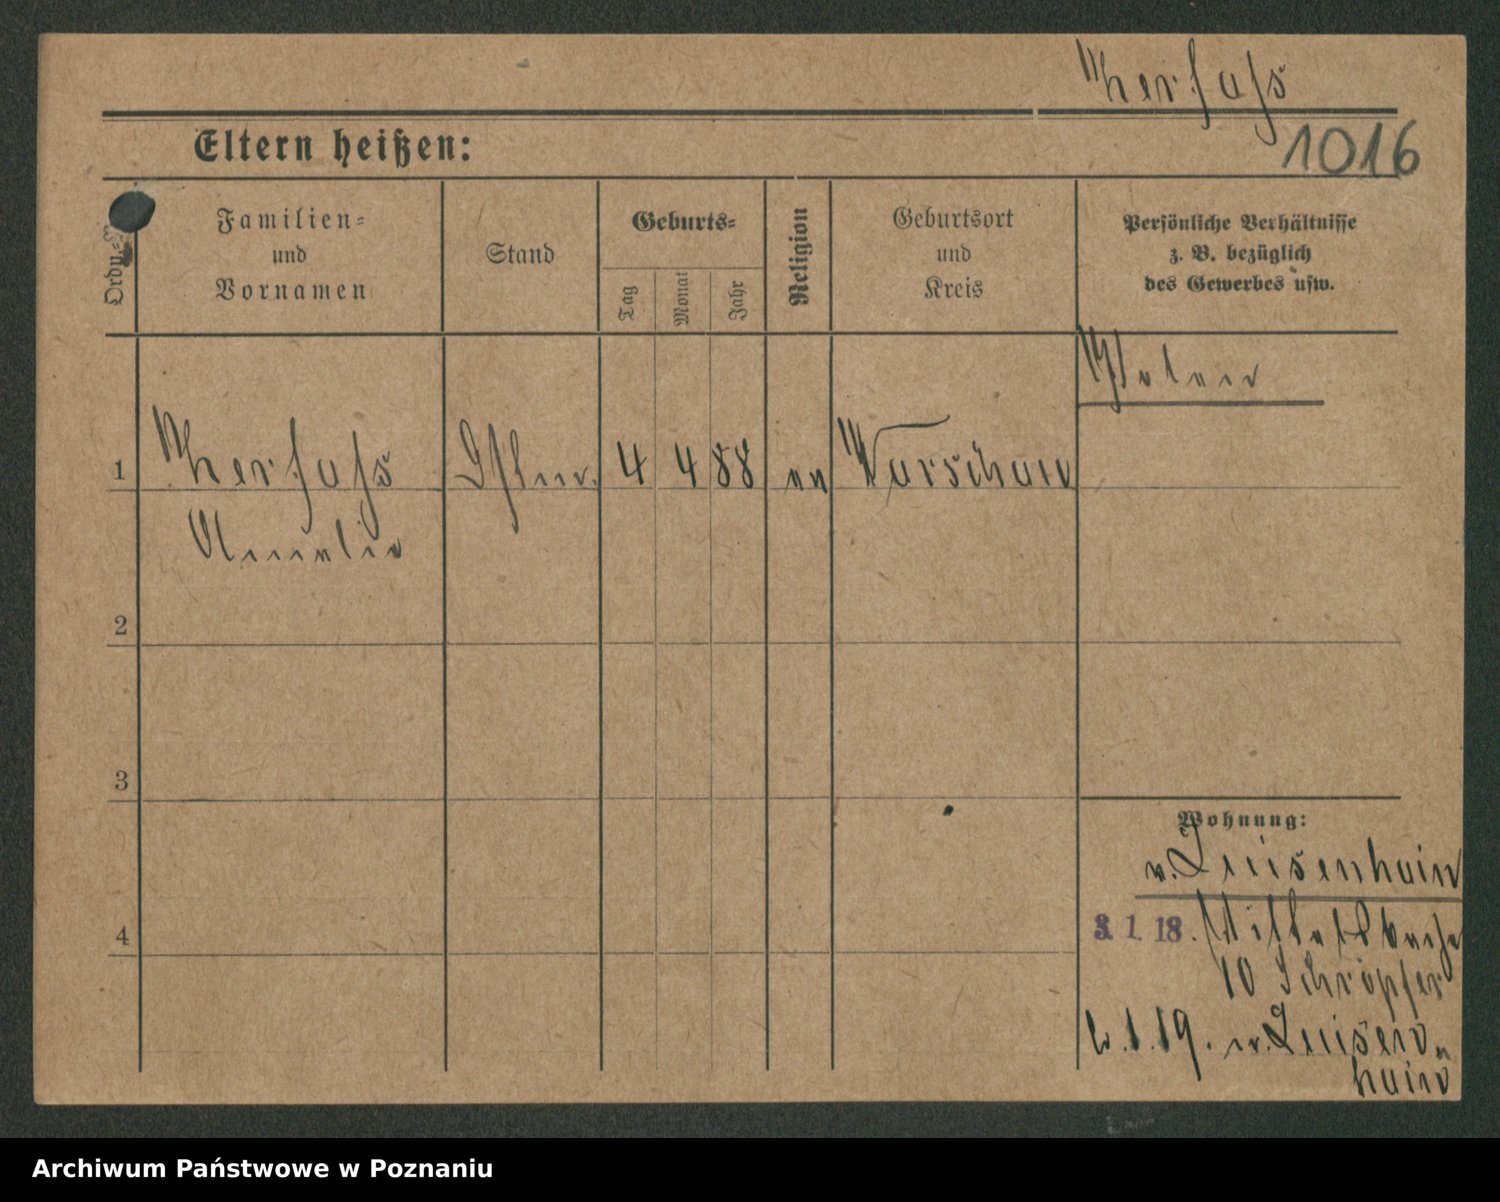 1016
Eltern heißen:
Ordn.=
Familien=
und
Vornamen
Stand
Geburts=
Tag
Monat
Jahr
Religion
Geburtsort
und
Kreis
Persönliche Verhältnisse
z. B. bezüglich
des Gewerbes usw.
1
4 4 88
Warschau
Amalie
2
3
4
Wohnung:
v. Luisenhain
3. 1. 18.
10 Schröpfer
2.1.19. n. Luisen
hain
Archiwum Państwowe w Poznaniu